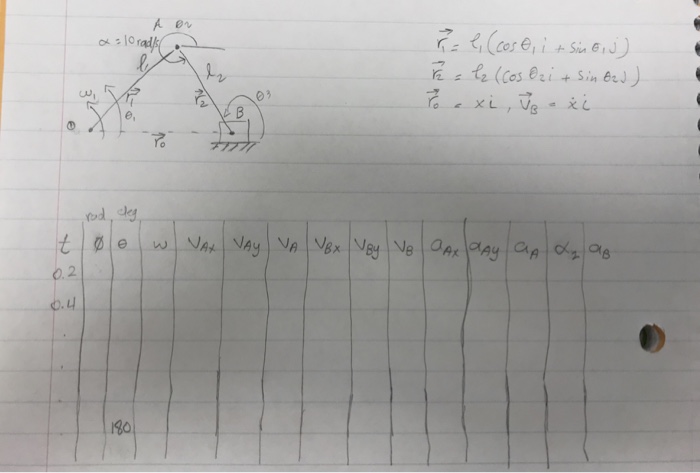 A θ2
α = 10 rad/s
l1
l2
ω1
r⃗1
θ1
r⃗2
B
θ3
r⃗0
r⃗1 = l1 (cos θ1 i + sin θ1 j)
r⃗2 = l2 (cos θ2 i + sin θ2 j)
r⃗0 = xi , V⃗B = ẋi
rad deg
t ∅ θ ω VAx VAy VA VBx VBy VB aAx aAy aA α2 aB
0.2
0.4
.
.
.
180